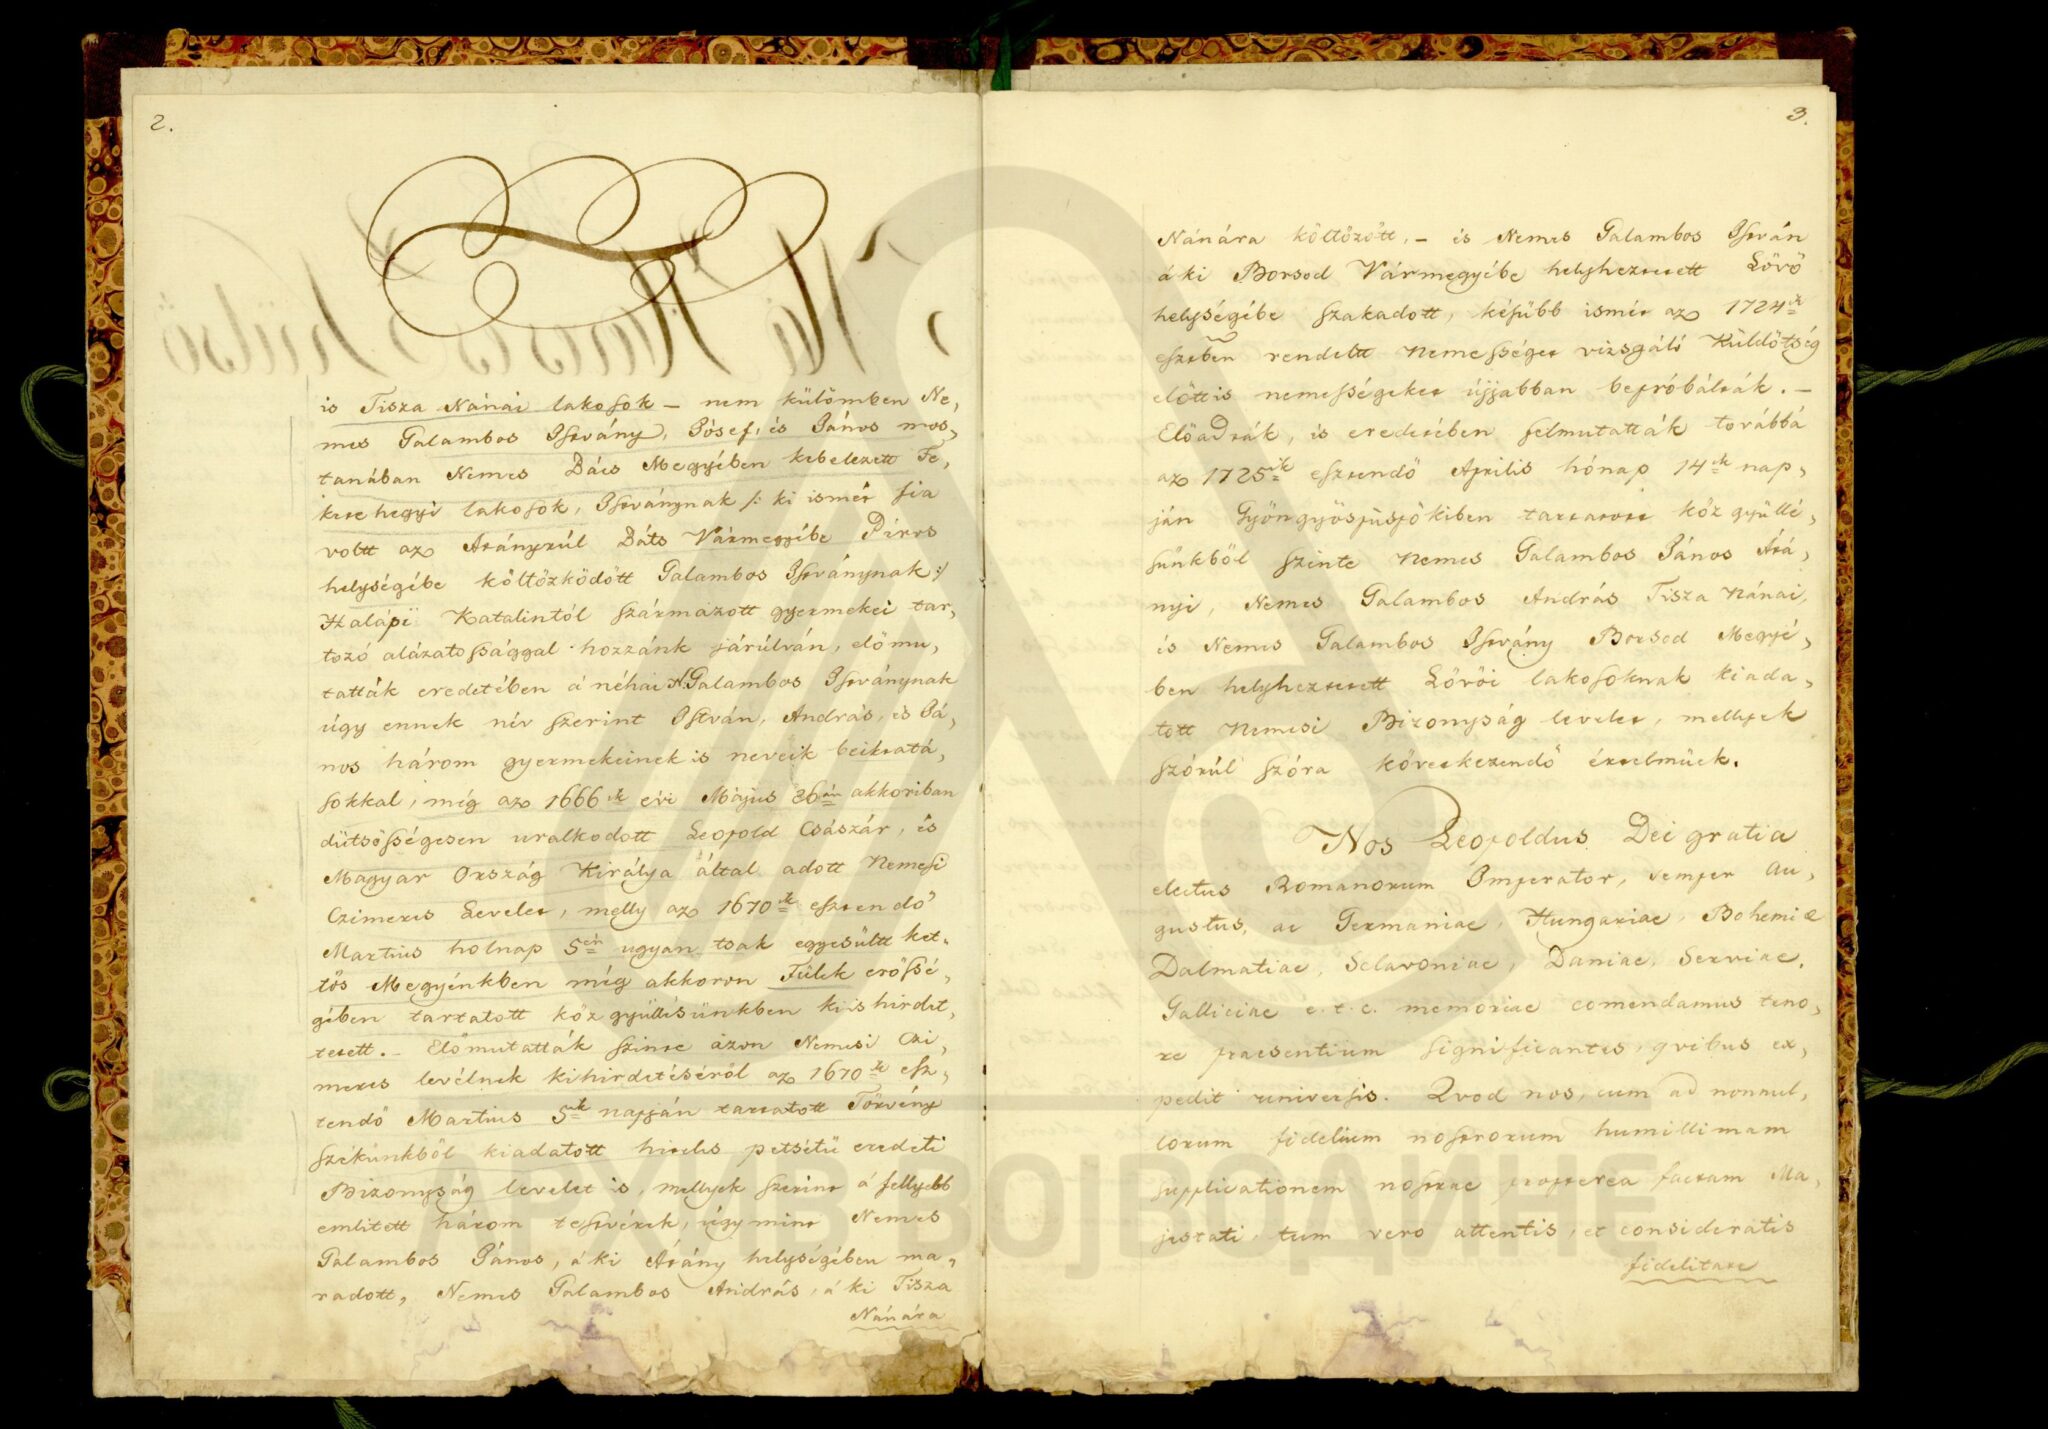 2.
is Tisza Nánai lakosok – nem külömben Ne,
mes Galambos István, Jósef, és János mos,
tanában Nemes Báts Megyében kebelezett Fe,
kete hegyi lakosok, Istványnak /: ki ismét fia
voltt az Arányrúl Báts Vármegyébe Pirros
helységébe költözködött Galambos Istványnak :/
Szalápi Katalintól származott gyermekei tar,
tozó alázatossággal hozzánk járúlván, elő mu,
tatták eredetében á néhai N. Galambos Istványnak
úgy ennek név szerint István, András, és Já,
nos három gyermekeinek is neveik beiktatá,
sokkal, még az 1666ik évi Május 26án akkoriban
dütsősségesen uralkodott Leopold Császár, és
Magyar Ország Királya által adott Nemesi
Czimeres Levelet, melly az 1670ik esztendő
Martius holnap 5én ugyan tsak egyesültt ket,
tős Megyénkben még akkoron Fülek erőssé,
gében tartatott köz gyűllésünkben ki is hirdet,
tetett. – Elő mutatták szinte azon Nemesi Czi,
meres levélnek kihirdetéséről az 1670ik esz,
tendő Martius 5ik napján tartatott Törvény
székünkből kiadatott hiteles petsétü eredeti
Bizonyság levelet is, mellyek szerint á fellyebb
emlitett három testvérek, úgy mint Nemes
Galambos János, á ki Arány helységében ma,
radott, Nemes Galambos András, á ki Tisza
Nánára
3.
Nánára költözött, – és Nemes Galambos István
á ki Borsod Vármegyébe helyheztetett Lövő
helységébe szakadott, késübb ismét az 1724ik
esztben rendeltt nemességet vizsgáló Küldötség
előtt is nemességeket újjabban bepróbálták. –
Előadták, és eredetében felmutatták továbbá
az 1725ik esztendő Aprilis hónap 14ik nap,
ján Gyöngyöspüspökiben tartatott köz gyűllé,
sünkből szinte Nemes Galambos János Ará,
nyi, Nemes Galambos András Tisza Nánai,
és Nemes Galambos István Borsod Megyé,
ben helyheztetett Lövői lakosoknak kiada,
tott Nemesi Bizonyság levelet, mellyek
szórúl szóra következendő értelmüek.
Nos Leopoldus Dei gratia
electus Romanorum Imperator, semper Au,
gustus, ac Germaniae, Hungariae, Bohemiae
Dalmatiae, Sclavoniae, Daniae, Serviae,
Galliciae e.t.c. memoriae comendamus teno,
re praesentium significantes, qvibus ex,
pedit universis. Qvod nos, cum ad nonnul,
lorum fidelium nostrorum humillimam
supplicationem nostrae propterea factam Ma,
jestati, tum vero attentis, et consideratis
fidelitate
АРХИВ ВОЈВОДИНЕ